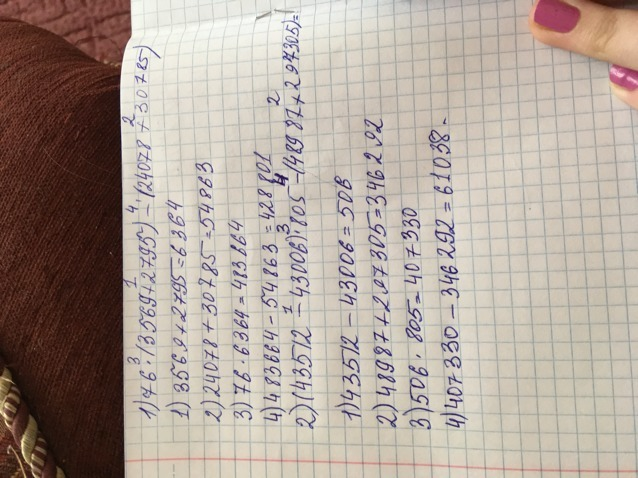 1) 76 · (3569 + 2795) - (24078 + 30785)
3 1 4 2
1) 3569 + 2795 = 6364
2) 24078 + 30785 = 54863
3) 76 · 6364 = 483664
4) 483664 - 54863 = 428801
2) (43512 - 43006) · 805 - (48987 + 297305) =
1 3 4 2
1) 43512 - 43006 = 506
2) 48987 + 297305 = 346292
3) 506 · 805 = 407330
4) 407330 - 346292 = 61038.